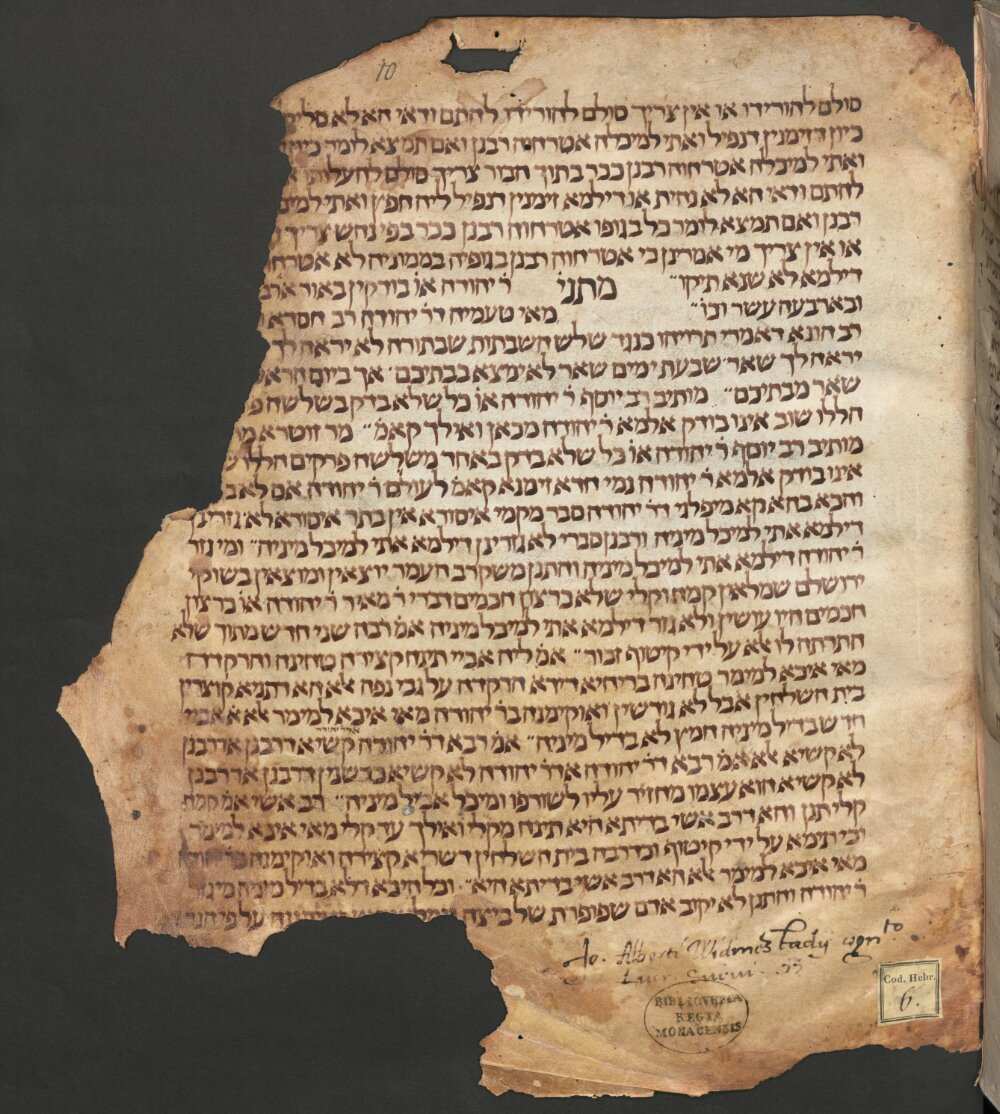 10
סולם להורידו או אין צריך סולם להורידו להתם ודאי הא לא סליק
כיון דזימנין דנפיל ואתי למיכלה אטרחוה רבנן ואם תמצא לומר כיון
ואתי למיכלה אטרחוה רבנן ככר בתוך הבור צריך סולם להעלותו
להתם ודאי הא לא נחית או דילמא זימנין דנפיל ליה חפץ ואתי למיכ
רבנן ואם תמצא לומר כל בגופו אטרחוה רבנן ככר בפי נחש צריך
או אין צריך מי אמרינן כי אטרחוה רבנן בגופיה בממוניה לא אטרחו
דילמא לא שנא תיקו״ מתני׳ ר׳ יהודה או׳ בודקין באור ארב
ובארבעה עשר וכו׳״ מאי טעמיה דר׳ יהודה רב חסדא
רב הונא דאמרי תרייהו כנגד שלש השבתות שבתורה לא יראה לך
יראה לך שאר שבעת ימים שאר לא ימצא בבתיכם׳ אך ביום הראש
שאר מבתיכם״ מותיב רב יוסף ר׳ יהודה או׳ כל שלא בדק בשלשה פ
הללו שוב אינו בודק אלמא ר׳ יהודה מכאן ואילך קאמ׳״ מר זוטרא מ
מותיב רב יוסף ר׳ יהודה או׳ כל שלא בדק באחד משלשה פרקים הללו ש
אינו בודק אלמא ר׳ יהודה נמי חדא זימנא קאמ׳ לעולם ר׳ יהודה אם לא ב
והכא בהא קא מיפלגי דר׳ יהודה סבר מקמי איסורא אין בתר איסורא לא גזרינן
דילמא אתי למיכל מיניה ורבנן סברי לא גזרינן דילמא אתי למיכל מיניה״ ומי גזר
ר׳ יהודה דילמא אתי למיכל מיניה והתנן משקרב העמר יוצאין ומוצאין בשוקי
ירושלם שמלאין קמח וקלי שלא ברצון חכמים דברי ר׳ מאיר ר׳ יהודה או׳ ברצון
חכמים היו עושין ולא גזר דילמא אתי למיכל מיניה אמ׳ רבה שני חדש מתוך שלא
התרתה לו אלא על ידי קיטוף זכור״ אמ׳ ליה אביי תינח קצירה טחינה והרקדה
מאי איכא למימר טחינה בריחיא דידא הרקדה על גבי נפה אלא הא דתניא קוצרין
בית השלחין אבל לא גודשין ואוקימנה כר׳ יהודה מאי איכא למימר אלא א׳ אביי
חדש בדיל מיניה חמץ לא בדיל מיניה״ אמ׳ רבא דר׳ יהודה קשיא דרבנן אדרבנן
לא קשיא אלא אמ׳ רבא דר׳ יהודה אדר׳ יהודה לא קשיא כדשנין דרבנן אדרבנן
לא קשיא הוא עצמו מחזיר עליו לשורפו ומיכל אכיל מיניה״ רב אשי אמ׳ קמח
קלי תנן והא דרב אשי בדיתא היא תינח מקלי ואילך עד קלי מאי איכא למימר
וכי תימא על ידי קיטוף וכדרבה בית השלחין דשריא קצירה ואוקימנה כר׳ יהודה
מאי איכא למימר אלא הא דרב אשי בדיתא היא״ וכל היכא דלא בדיל מיניה מי גזר
ר׳ יהודה והתנן לא יקוב אדם שפופרת של ביצה על פי הנר
Jo. Alberti Widmestadij
BIBLIOTHECA
REGIA
MONACENSIS
Cod. Hebr.
6.